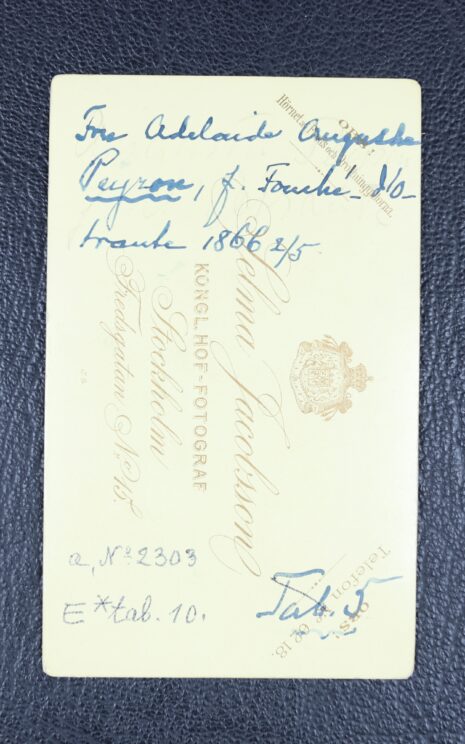 Fru Adelaide Augusta
Peyron, f. Fouché-d'O-
trante 1866 2/5
Selma Jacobsson
KONGL. HOF-FOTOGRAF
Stockholm
Fredsgatan No. 15.
OBS!
Telefon
a, No 2303
E*tab. 10.
Tab. 5